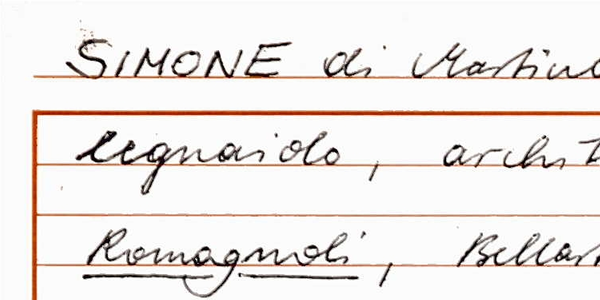 SIMONE di Martino
legnaiolo, archit
Romagnoli, Bellar